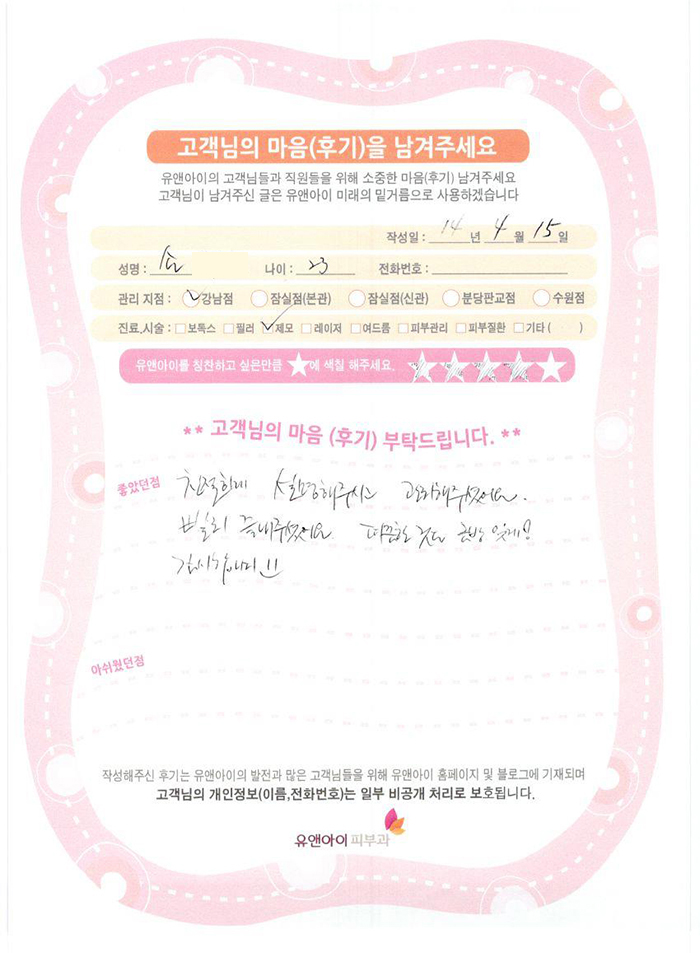 고객님의 마음(후기)을 남겨주세요
유앤아이의 고객님들과 직원들을 위해 소중한 마음(후기) 남겨주세요
고객님이 남겨주신 글은 유앤아이 미래의 밑거름으로 사용하겠습니다
작성일 : 14 년 4 월 15 일
성명 : 손 나이 : 23 전화번호 :
관리 지점 : 강남점 잠실점(본관) 잠실점(신관) 분당판교점 수원점
진료,시술 : 보톡스 필러 제모 레이저 여드름 피부관리 피부질환 기타 ( )
유앤아이를 칭찬하고 싶은만큼 ★에 색칠 해주세요.
** 고객님의 마음 (후기) 부탁드립니다. **
좋았던점 친절하게 설명해주시고 관리해주셨어요.
빨리 끝내주셨어요 따끔한 것도 금방 잊게!
감사합니다!!
아쉬웠던점
작성해주신 후기는 유앤아이의 발전과 많은 고객님들을 위해 유앤아이 홈페이지 및 블로그에 기재되며
고객님의 개인정보(이름,전화번호)는 일부 비공개 처리로 보호됩니다.
유앤아이 피부과